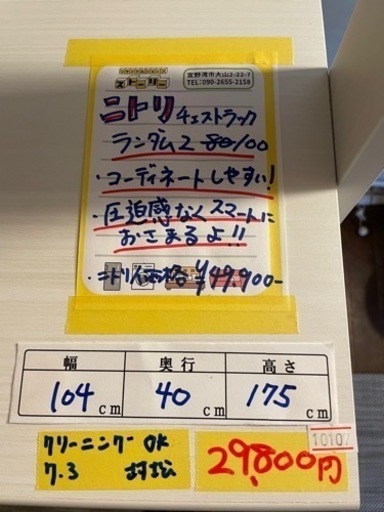 ストーリー
宜野湾市大山2-22-7
TEL:090-2655-2158
ニトリ チェストラック
ランダム2 80/00
・コーディネートしやすい!
・圧迫感なくスマートに
おさまるよ!!
・ニトリ価格 ¥49,900-
幅 奥行 高さ
104cm 40cm 175cm
クリーニング OK
7.3
10107
29,800円